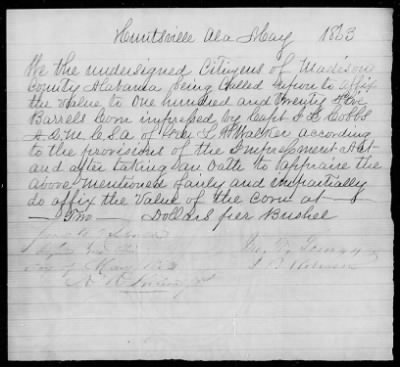 Huntsville Ala May 1863
We the undersigned Citizens of Madison
County Alabama being Called upon to affix
the Value to One hundred and twenty five
Barrels Corn impressed by Capt J L Cobbs
A.Q.M. CSA of L. H. Walker according
to the provisions of the Impressment Act
and after taking an Oath to appraise the
above mentioned fairly and impartially
do affix the Value of the Corn at
Two Dollars per Bushel
day of May 1863